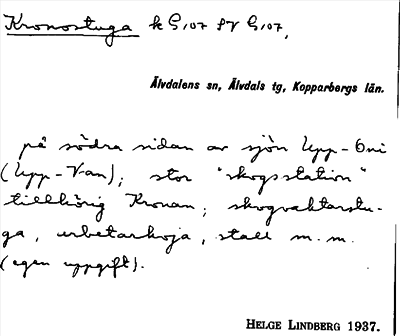 Kronostuga k G,07 SV G,07,
Älvdalens sn, Älvdals tg, Kopparbergs län.
på södra sidan av sjön Upp-Oni
(Upp-Van); stor "skogsstation"
tillhörig Kronan; skogvaktarstu-
ga, arbetarkoja, stall m.m.
(egen uppgift).
HELGE LINDBERG 1937.